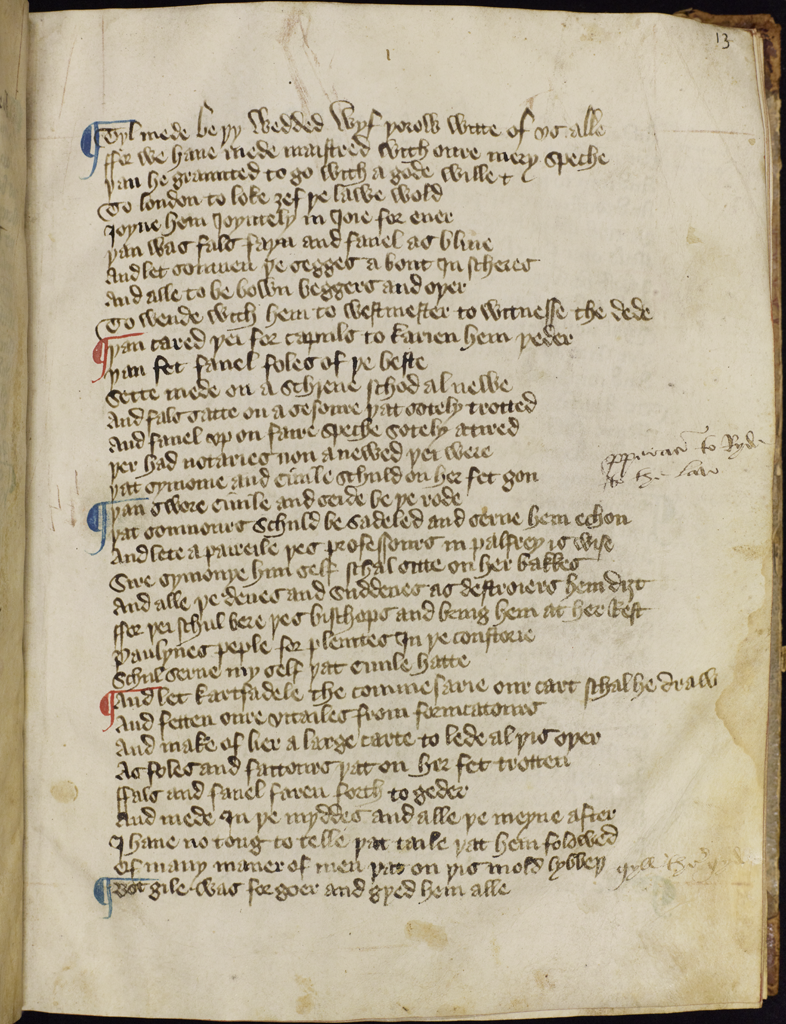 13
Tyl mede be þy wedded wyf þorow witte of vs alle
ffor we haue mede maistred with oure mery speche
þan he graunted to go with a gode wille
To london to loke ȝef þe lawe wold
Joyne hem Joyntely in Joie for euer
þan was fals fayn and fauel as bliue
And let somnen þe segges a bout In scheres
And alle to be bown beggers and oþer
To wende with hem to westmester to witnesse the dede
þan cared þei for capuls to karien hem þeder
þan fet fauel foles of þe beste
Sette mede on a schreue schod al newe
And fals satte on a sesoure þat sotely trotted
And fauel vp on faire speche sotely atired
þer had notaries non anewed þei were
þat symonie and Ciuile schuld on her fet gon
þan swore Ciuile and seide be þe rode
þat somnours schuld be sadeled and serue hem echon
And lete a paireile þes professours in palfrey is wise
Sire symonye him self schal sitte on her bakkes
And alle þe denes and suddenes as destroiers hem diȝt
ffor þei schul bere þes bischops and bring hem at her Rest
Paulynes peple for pleintes In þe constorie
Schul serue my self þat Ciuile hatte
And let kartsadele the commesarie our cart schal he draw
And fetten oure vitailes from fornicatours
And make of lier a large carte to lede al þis oþer
As foles and faitours þat on her fet trotten
ffals and fauel faren forth to geder
And mede In þe myddes and alle þe meyne after
I haue no toug to telle þat taile þat hem folowed
Of many maner of men þat on þis mold lybbeþ
Bot gile was for goer and gyed hem alle
to Ryde
to the law
gyle the